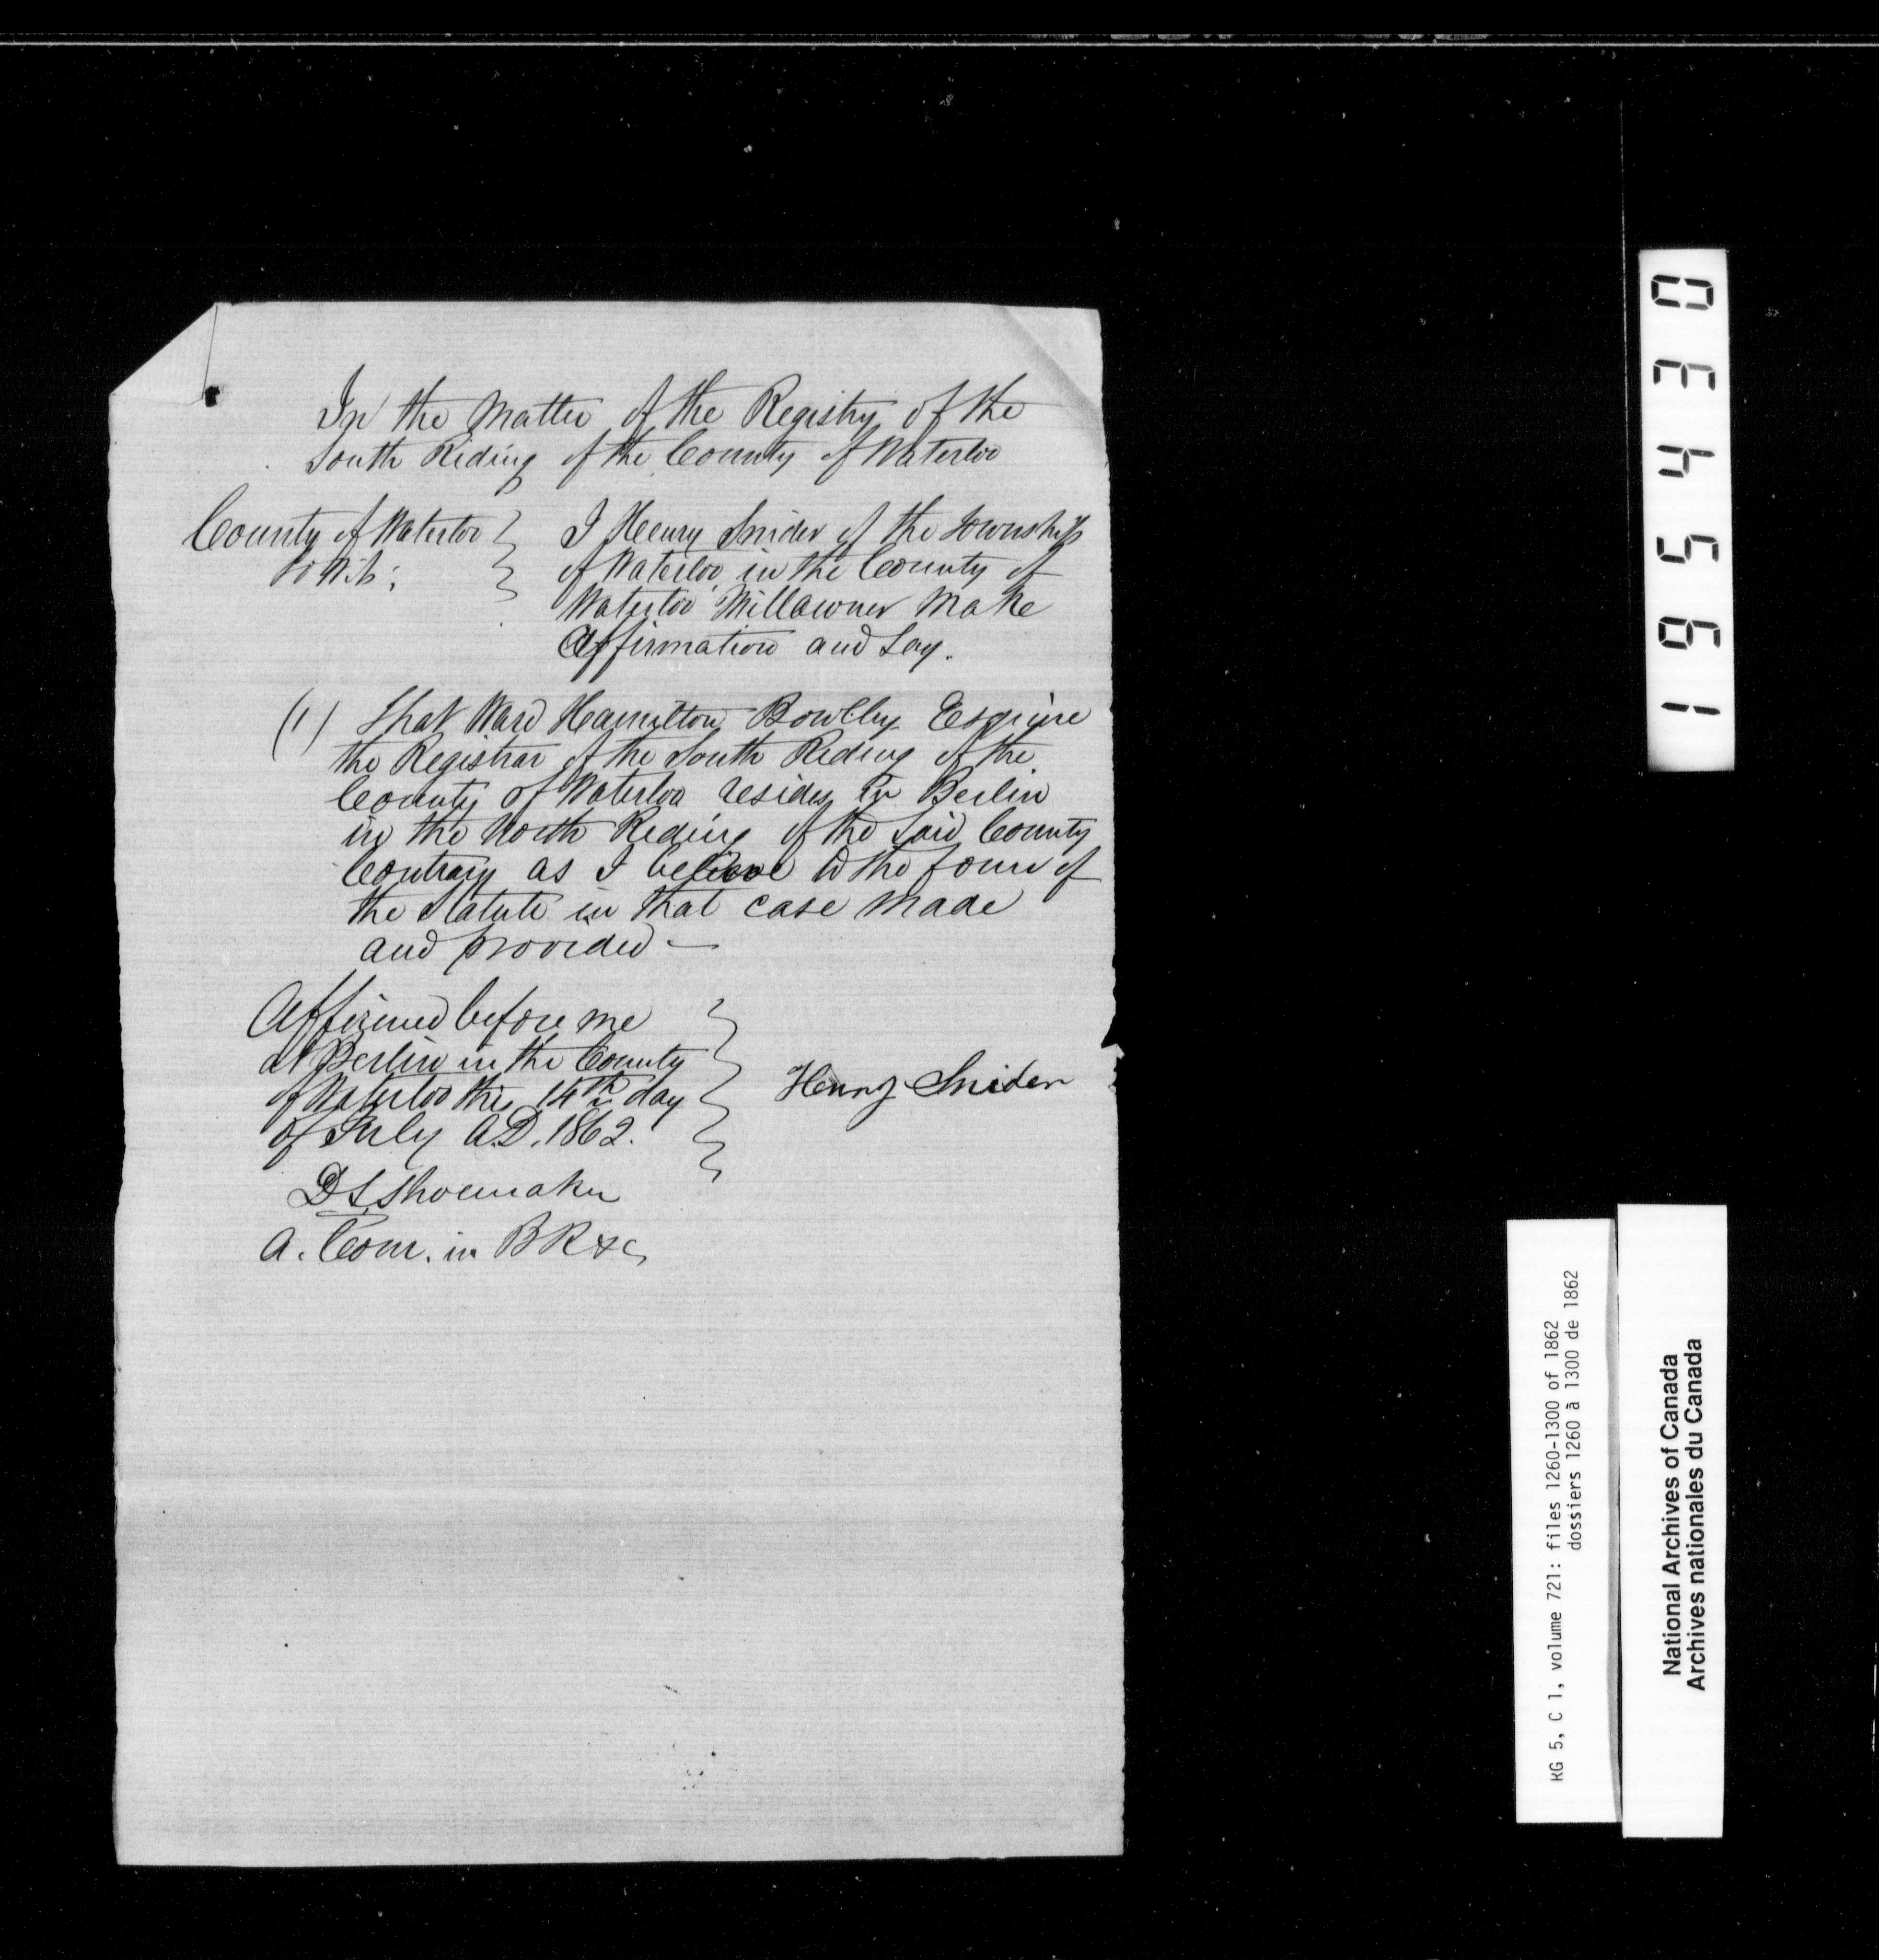 In the Matter of the Registry of the
South Riding of the County of Waterloo
County of Waterloo
To Wit:
I Henry Snider of the Township
of Waterloo in the County of
Waterloo Millowner Make
Affirmation and Say.
(1) That Ward Hamilton Bowlby Esquire
the Registrar of the South Riding of the
County of Waterloo resides in Berlin
in the North Riding of the Said County
Contrary as I believe to the form of
the Statute in that case made
and provided —
Affirmed before me
at Berlin in the County
of Waterloo this 14th day
of July A.D. 1862.
Henry Snider
D S Shoemaker
A. Com. in BR &c
195430
RG 5, C 1, volume 721: files 1260-1300 of 1862
dossiers 1260 à 1300 de 1862
National Archives of Canada
Archives nationales du Canada